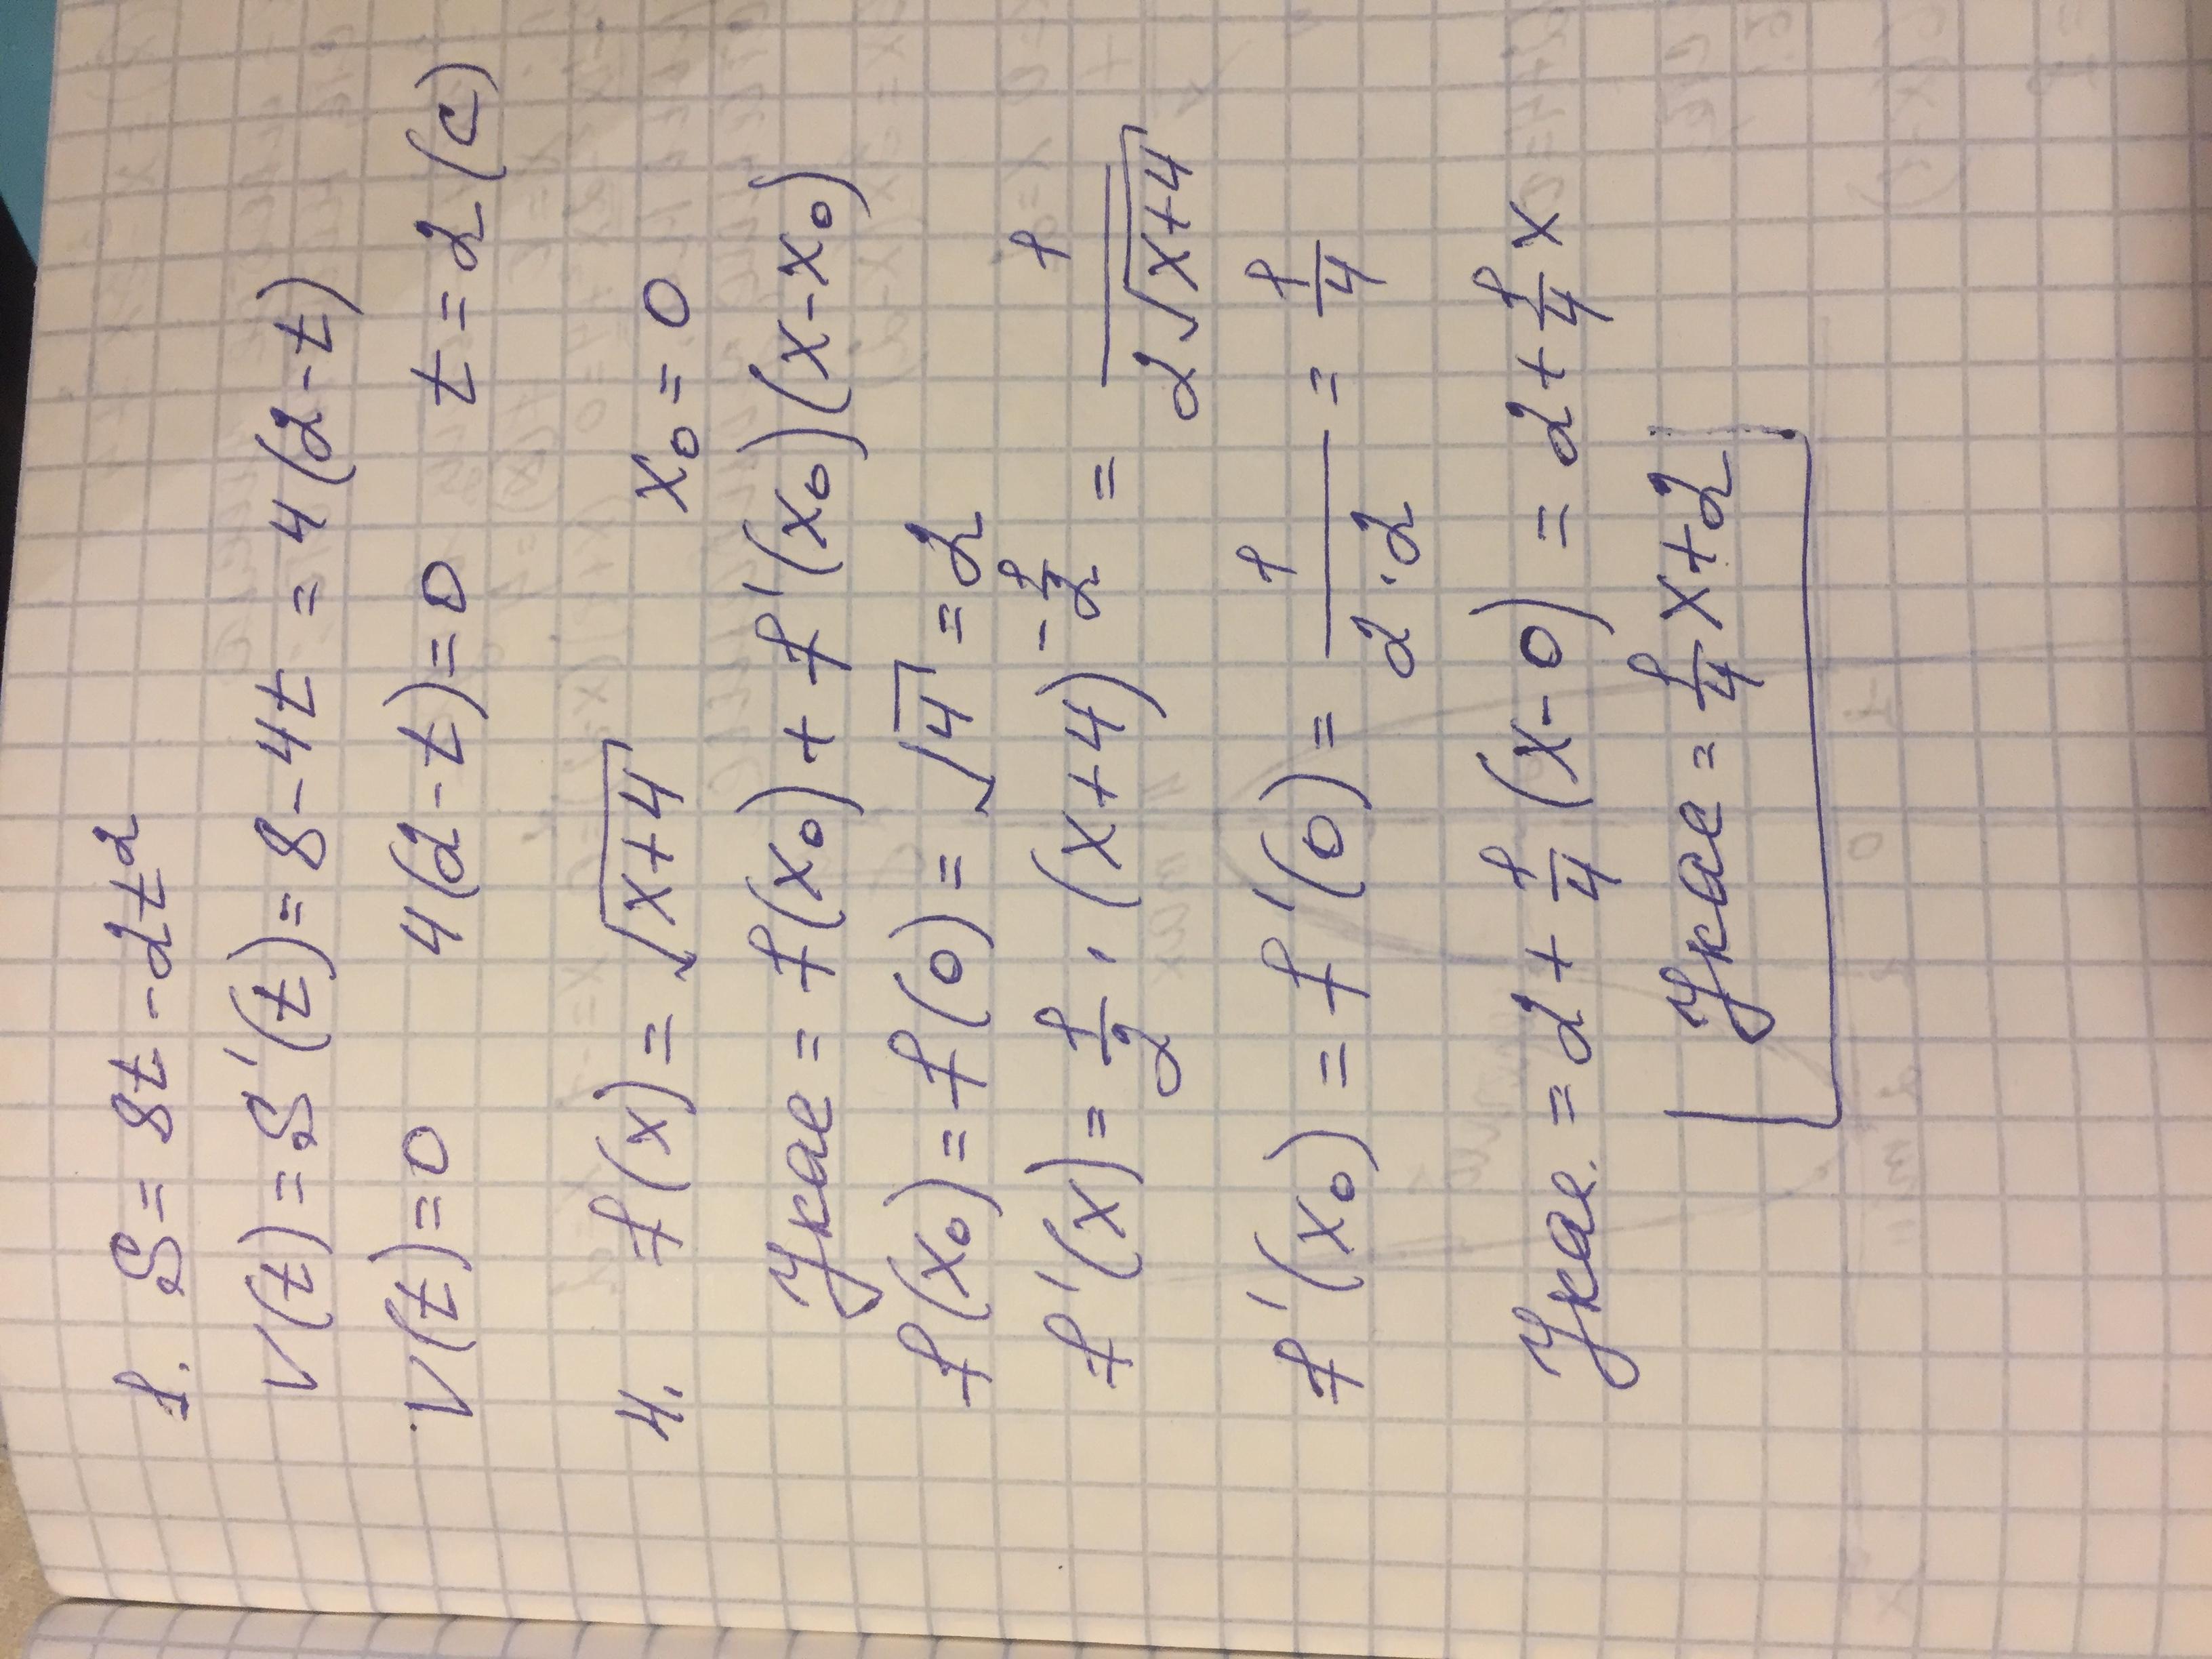 1. S = 8t - 2t²
V(t) = S'(t) = 8 - 4t = 4(2 - t)
V(t) = 0 4(2 - t) = 0 t = 2 (c)
4. f(x) = √(x+4) x₀ = 0
Yкас = f(x₀) + f'(x₀)(x - x₀)
f(x₀) = f(0) = √4 = 2
f'(x) = 1/2 · (x+4)^(-1/2) = 1/(2√(x+4))
f'(x₀) = f'(0) = 1/(2·2) = 1/4
Yкас. = 2 + 1/4 (x - 0) = 2 + 1/4 x
Yкас = 1/4 x + 2